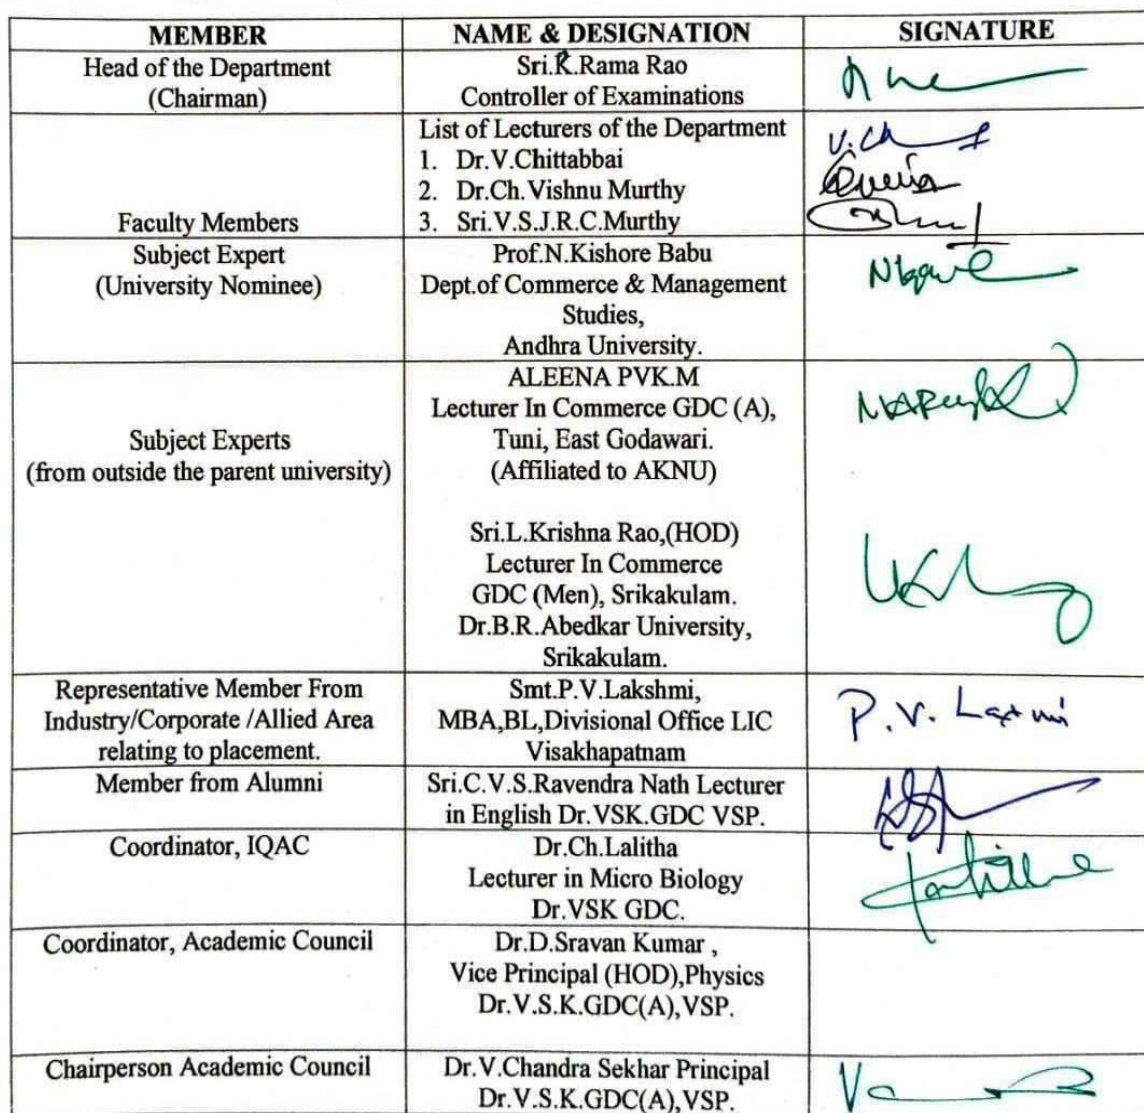 MEMBER NAME & DESIGNATION SIGNATURE
Head of the Department
(Chairman)
Sri.R.Rama Rao
Controller of Examinations
Faculty Members
List of Lecturers of the Department
1. Dr.V.Chittabbai
2. Dr.Ch.Vishnu Murthy
3. Sri.V.S.J.R.C.Murthy
Subject Expert
(University Nominee)
Prof.N.Kishore Babu
Dept.of Commerce & Management
Studies,
Andhra University.
Subject Experts
(from outside the parent university)
ALEENA PVK.M
Lecturer In Commerce GDC (A),
Tuni, East Godawari.
(Affiliated to AKNU)
Sri.L.Krishna Rao,(HOD)
Lecturer In Commerce
GDC (Men), Srikakulam.
Dr.B.R.Abedkar University,
Srikakulam.
Representative Member From
Industry/Corporate /Allied Area
relating to placement.
Smt.P.V.Lakshmi,
MBA,BL,Divisional Office LIC
Visakhapatnam
P.V. Laxmi
Member from Alumni
Sri.C.V.S.Ravendra Nath Lecturer
in English Dr.VSK.GDC VSP.
Coordinator, IQAC
Dr.Ch.Lalitha
Lecturer in Micro Biology
Dr.VSK GDC.
Coordinator, Academic Council
Dr.D.Sravan Kumar ,
Vice Principal (HOD),Physics
Dr.V.S.K.GDC(A),VSP.
Chairperson Academic Council
Dr.V.Chandra Sekhar Principal
Dr.V.S.K.GDC(A),VSP.